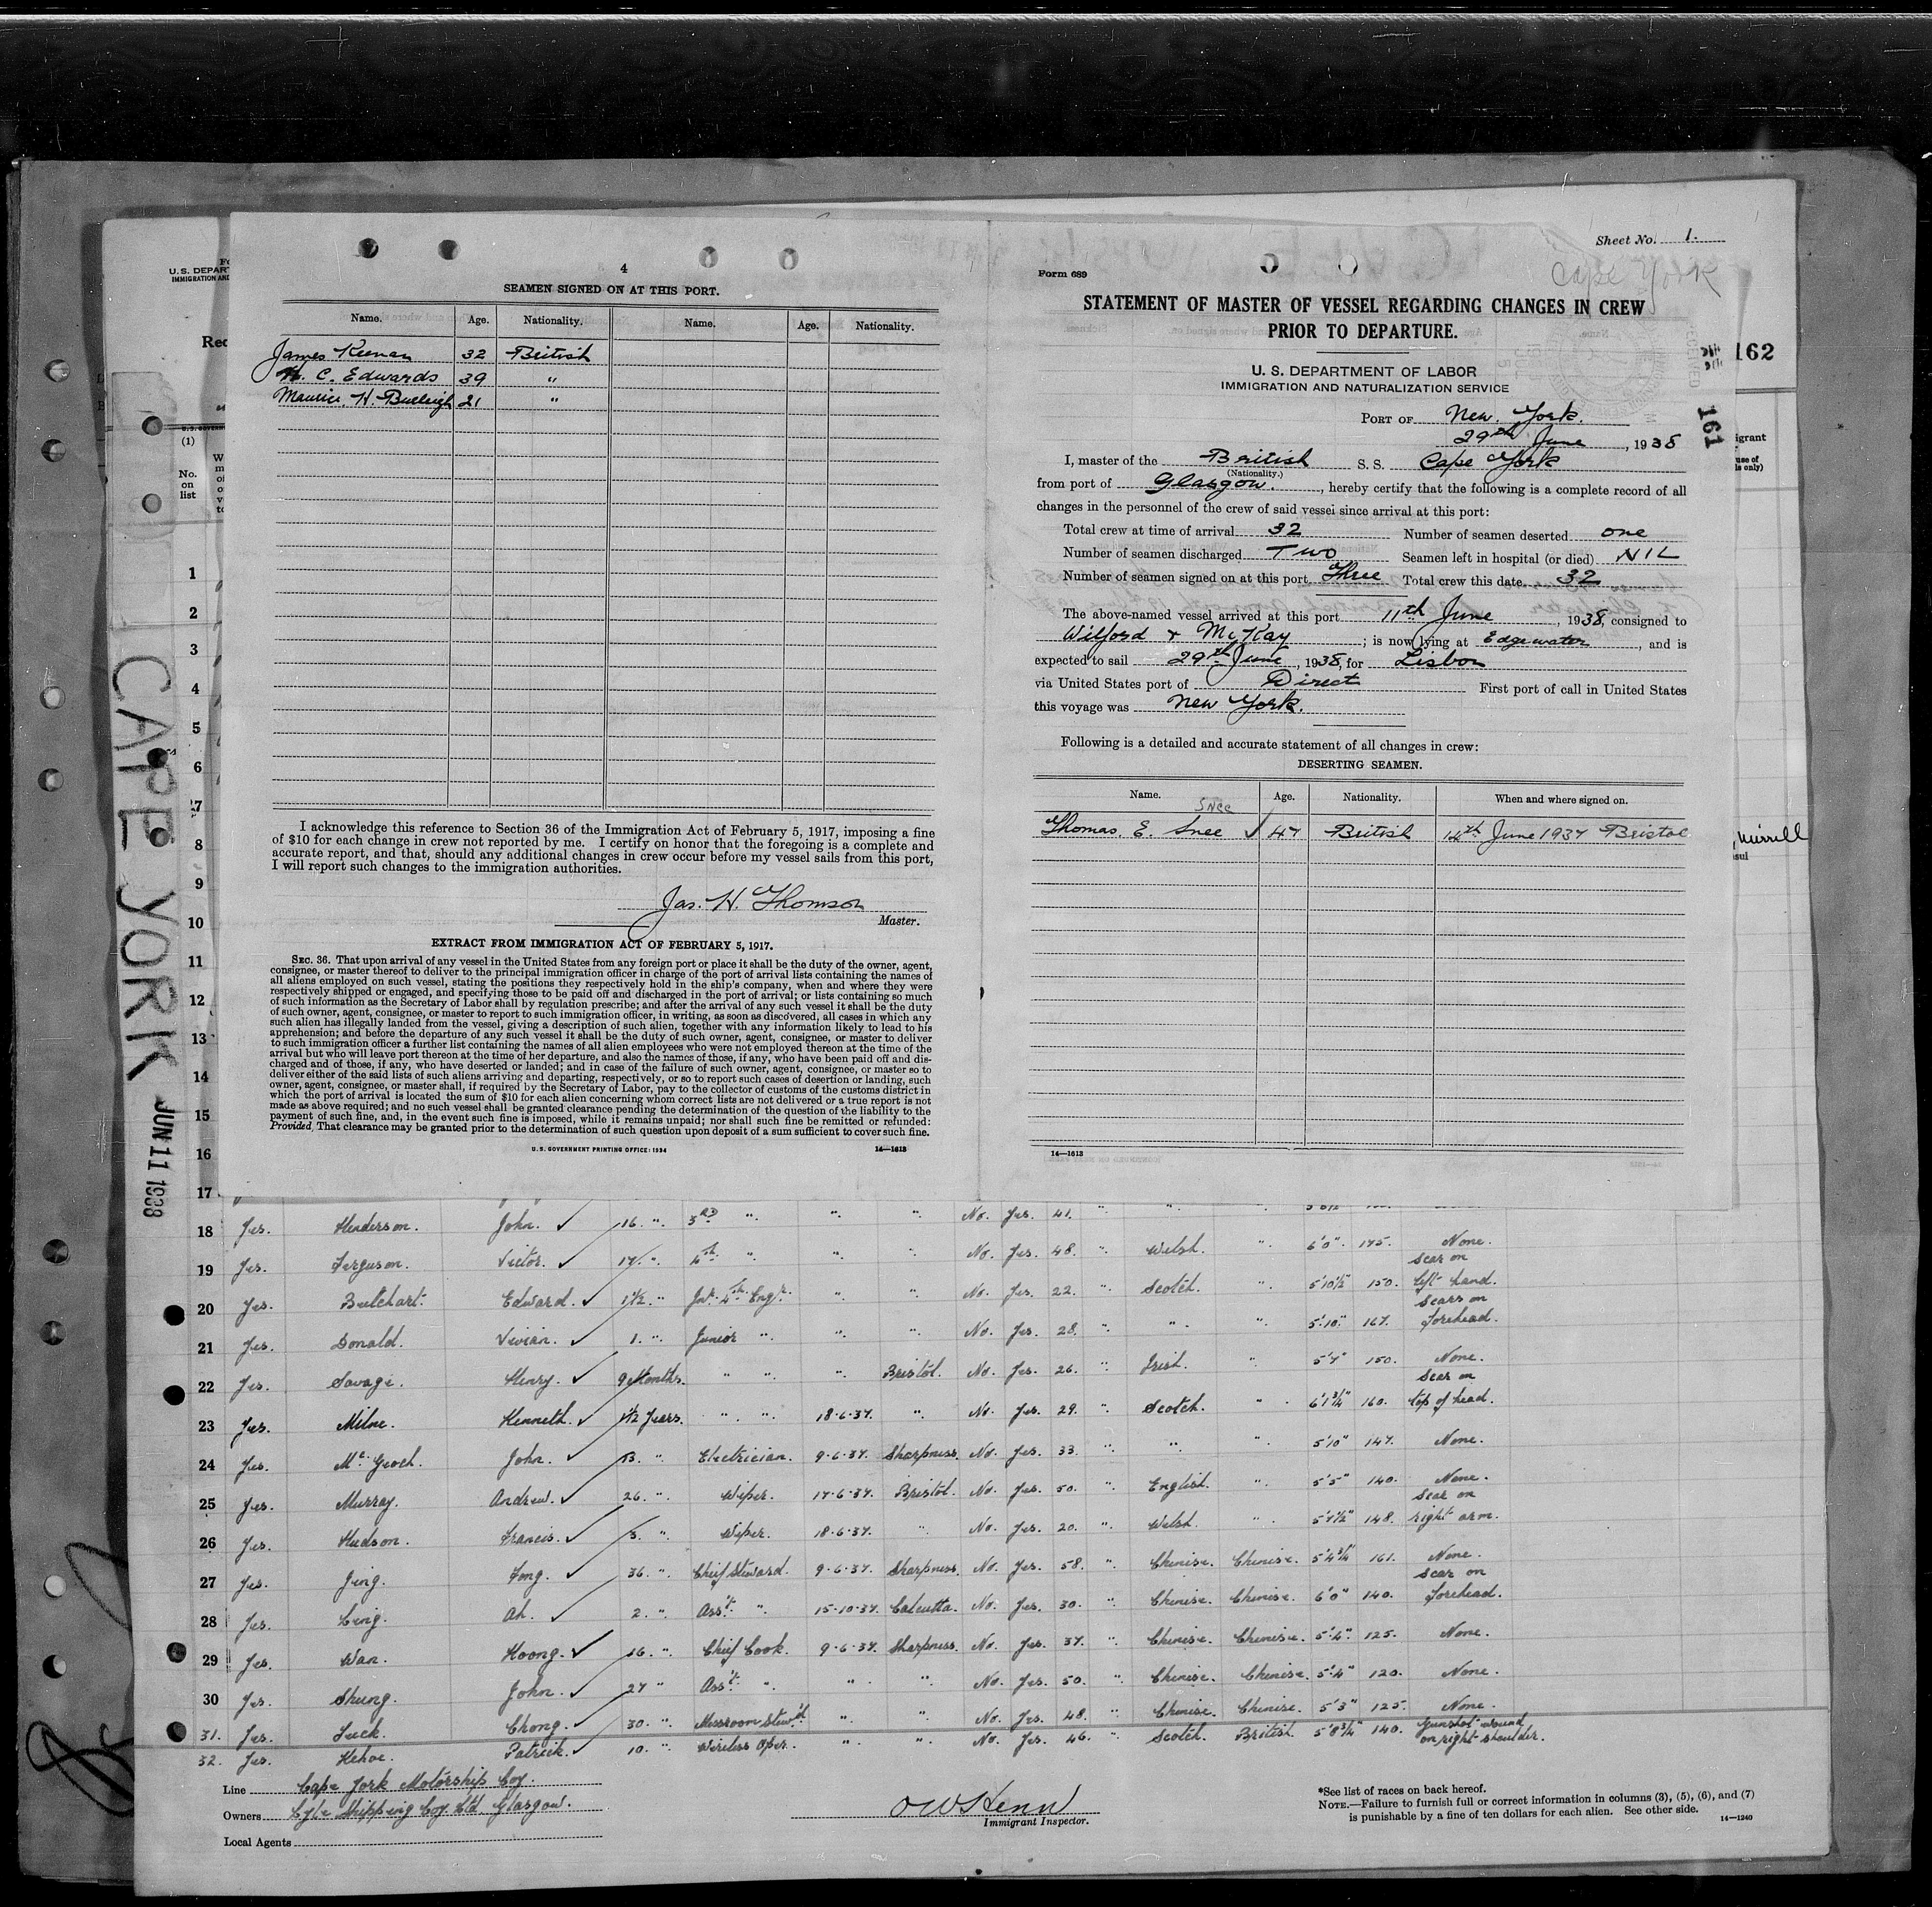 4
SEAMEN SIGNED ON AT THIS PORT.
Name. Age. Nationality. Name. Age. Nationality.
James Keenan 32 British
C. Edwards 39 "
Maurice. H. Burleigh 21 "
I acknowledge this reference to Section 36 of the Immigration Act of February 5, 1917, imposing a fine
of $10 for each change in crew not reported by me. I certify on honor that the foregoing is a complete and
accurate report, and that, should any additional changes in crew occur before my vessel sails from this port,
I will report such changes to the immigration authorities.
Jas. H. Thomson
Master.
EXTRACT FROM IMMIGRATION ACT OF FEBRUARY 5, 1917.
SEC. 36. That upon arrival of any vessel in the United States from any foreign port or place it shall be the duty of the owner, agent,
consignee, or master thereof to deliver to the principal immigration officer in charge of the port of arrival lists containing the names of
all aliens employed on such vessel, stating the positions they respectively hold in the ship's company, when and where they were
respectively shipped or engaged, and specifying those to be paid off and discharged in the port of arrival; or lists containing so much
of such information as the Secretary of Labor shall by regulation prescribe; and after the arrival of any such vessel it shall be the duty
of such owner, agent, consignee, or master to report to such immigration officer, in writing, as soon as discovered, all cases in which any
such alien has illegally landed from the vessel, giving a description of such alien, together with any information likely to lead to his
apprehension; and before the departure of any such vessel it shall be the duty of such owner, agent, consignee, or master to deliver
to such immigration officer a further list containing the names of all alien employees who were not employed thereon at the time of the
arrival but who will leave port thereon at the time of her departure, and also the names of those, if any, who have been paid off and dis-
charged and of those, if any, who have deserted or landed; and in case of the failure of such owner, agent, consignee, or master so to
deliver either of the said lists of such aliens arriving and departing, respectively, or so to report such cases of desertion or landing, such
owner, agent, consignee, or master shall, if required by the Secretary of Labor, pay to the collector of customs of the customs district in
which the port of arrival is located the sum of $10 for each alien concerning whom correct lists are not delivered or a true report is not
made as above required; and no such vessel shall be granted clearance pending the determination of the question of the liability to the
payment of such fine, and, in the event such fine is imposed, while it remains unpaid; nor shall such fine be remitted or refunded:
Provided, That clearance may be granted prior to the determination of such question upon deposit of a sum sufficient to cover such fine.
U.S. GOVERNMENT PRINTING OFFICE: 1934 14—1613
Sheet No. 1.
Cape York
Form 689
STATEMENT OF MASTER OF VESSEL REGARDING CHANGES IN CREW
PRIOR TO DEPARTURE.
U. S. DEPARTMENT OF LABOR
IMMIGRATION AND NATURALIZATION SERVICE
162
161
PORT OF New York.
29th June, 1938
I, master of the British S. S. Cape York
(Nationality.)
from port of Glasgow., hereby certify that the following is a complete record of all
changes in the personnel of the crew of said vessel since arrival at this port:
Total crew at time of arrival 32 Number of seamen deserted one
Number of seamen discharged Two Seamen left in hospital (or died) NIL
Number of seamen signed on at this port Three Total crew this date 32
The above-named vessel arrived at this port 11th June, 1938, consigned to
Wilford & McKay; is now lying at Edgewater, and is
expected to sail 29th June, 1938, for Lisbon
via United States port of Direct First port of call in United States
this voyage was New York.
Following is a detailed and accurate statement of all changes in crew:
DESERTING SEAMEN.
Name. Age. Nationality. When and where signed on.
Snee
Thomas E. Snee ✓ 47 British 14th June 1937 Bristol
14—1613
U. S. DEPAR
IMMIGRATION AND
Rec
(1)
No.
on
list
CAPE YORK JUN 11 1938
1
2
3
4
5
6
7
8
9
10
11
12
13
14
15
16
17
18 Yes. Henderson. John. ✓ 16. ". 3RD ". ". ". No. Yes. 41. ".
19 Yes. Ferguson. Victor. ✓ 17. ". 4th ". ". ". No. Yes. 48. ". Welsh. ". 6'0". 175. None.
20 Yes. Butchart. Edward. ✓ 1½. ". Jnr. 4th Engr. ". ". No. Yes. 22. ". Scotch. ". 5'10½" 150. Scar on left hand.
21 Yes. Donald. Vivian. ✓ 1. ". Junior ". ". ". No. Yes. 28. ". ". ". 5'10". 167. Scars on forehead.
22 Yes. Savage. Henry. ✓ 9 Months. " ". ". Bristol. No. Yes. 26. ". Irish. ". 5'7" 150. None.
23 Yes. Milne. Kenneth. ✓ 1½ Years. ". ". 18-6-37. ". No. Yes. 29. ". Scotch. ". 6'1¾" 160. Scar on top of head.
24 Yes. Mc Geoch. John. ✓ 13. ". Electrician. 9-6-37. Sharpness. No. Yes. 33. ". ". ". 5'10" 147. None.
25 Yes. Murray. Andrew. ✓ 26. ". Wiper. 17-6-37. Bristol. No. Yes. 50. ". English. ". 5'5" 140. None.
26 Yes. Hudson. Francis. ✓ 3. ". Wiper. 18-6-37. ". No. Yes. 20. ". Welsh. ". 5'7½" 148. Scar on right arm.
27 Yes. Jing. Fong. ✓ 36. ". Chief Steward. 9-6-37. Sharpness. No. Yes. 58. ". Chinise. Chinise. 5'4¾" 161. None.
28 Yes. Ling. Ah. ✓ 2. ". Asst. ". 15-10-37. Calcutta. No. Yes. 30. ". Chinise. Chinise. 6'0" 140. Scar on forehead.
29 Yes. Wan. Koong. ✓ 16. ". Chief Cook. 9-6-37. Sharpness. No. Yes. 37. ". Chinise. Chinise. 5'4". 125. None.
30 Yes. Shung. John. ✓ 27 " Asst. ". ". ". No. Yes. 50. ". Chinise. Chinise. 5'4" 120. None.
31. Yes. Luck. Chong. ✓ 30. ". Messroom Stewd. ". ". No. Yes. 48. ". Chinise. Chinise. 5'3" 125. None.
32. Yes. Kehoe. Patrick. ✓ 10. ". Wireless Oper. ". ". No. Yes. 46. ". Scotch. British. 5'8¾" 140. Gunshot wound on right shoulder.
Line Cape York Motorship Coy.
Owners Lyle Shipping Coy. Ltd. Glasgow.
Local Agents
Immigrant Inspector.
*See list of races on back hereof.
NOTE.—Failure to furnish full or correct information in columns (3), (5), (6), and (7)
is punishable by a fine of ten dollars for each alien. See other side. 14—1240